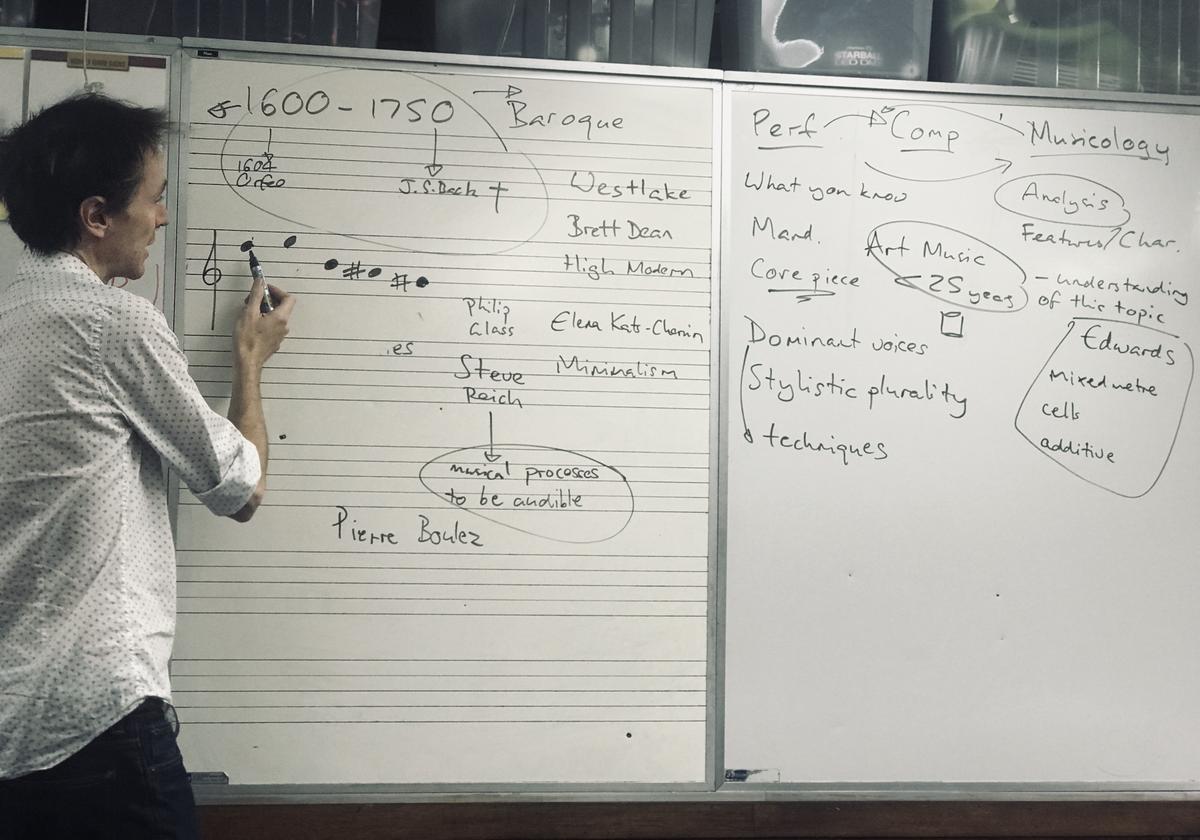 1600 - 1750 → Baroque
1604
Orfeo
J.S.Bach †
Westlake
Brett Dean
High Modern
Philip
Glass
Elena Kats-Chernin
es
Steve
Reich
Minimalism
musical processes
to be audible
Pierre Boulez
Perf
Comp
Musicology
What you know
Mand.
Core piece
Art Music
< 25 years
Analysis
Features/Char.
- understanding
of this topic
Dominant voices
Stylistic plurality
techniques
Edwards
Mixed metre
cells
additive
STARBALL